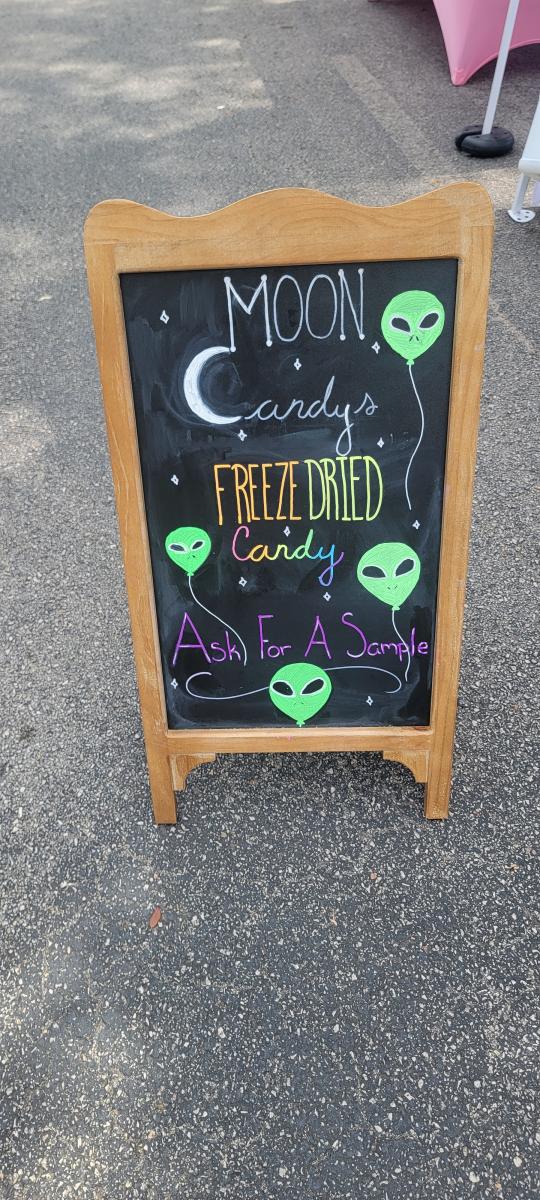 MOON
Candys
FREEZE DRIED
Candy
Ask For A Sample